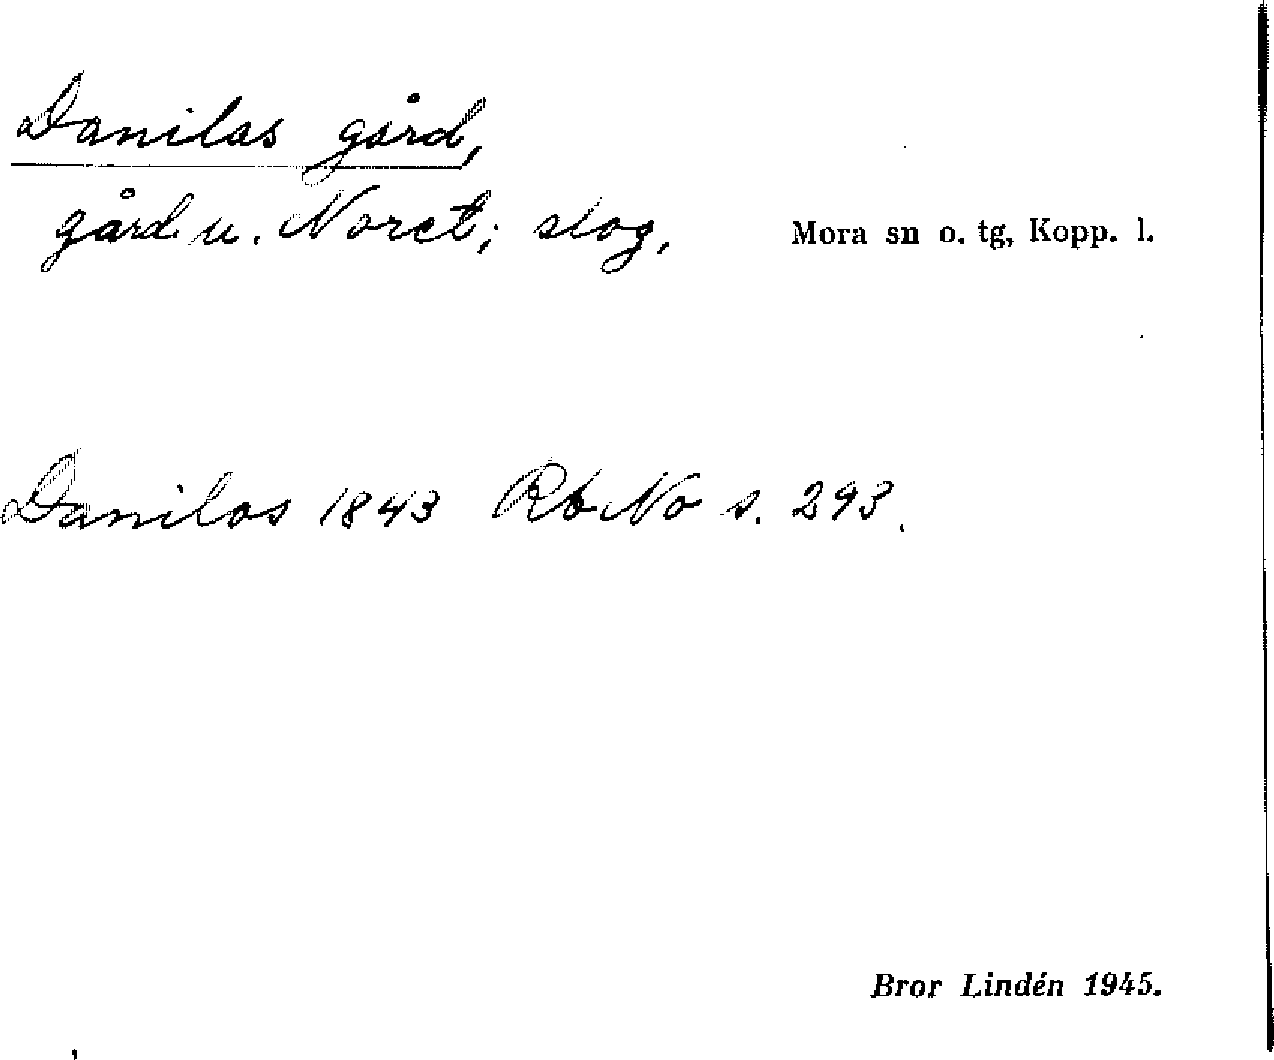 Danilas gård,
gård u. Noret; slog, Mora sn o. tg, Kopp. l.
Danilas 1843 RbNo s. 293.
Bror Lindén 1945.